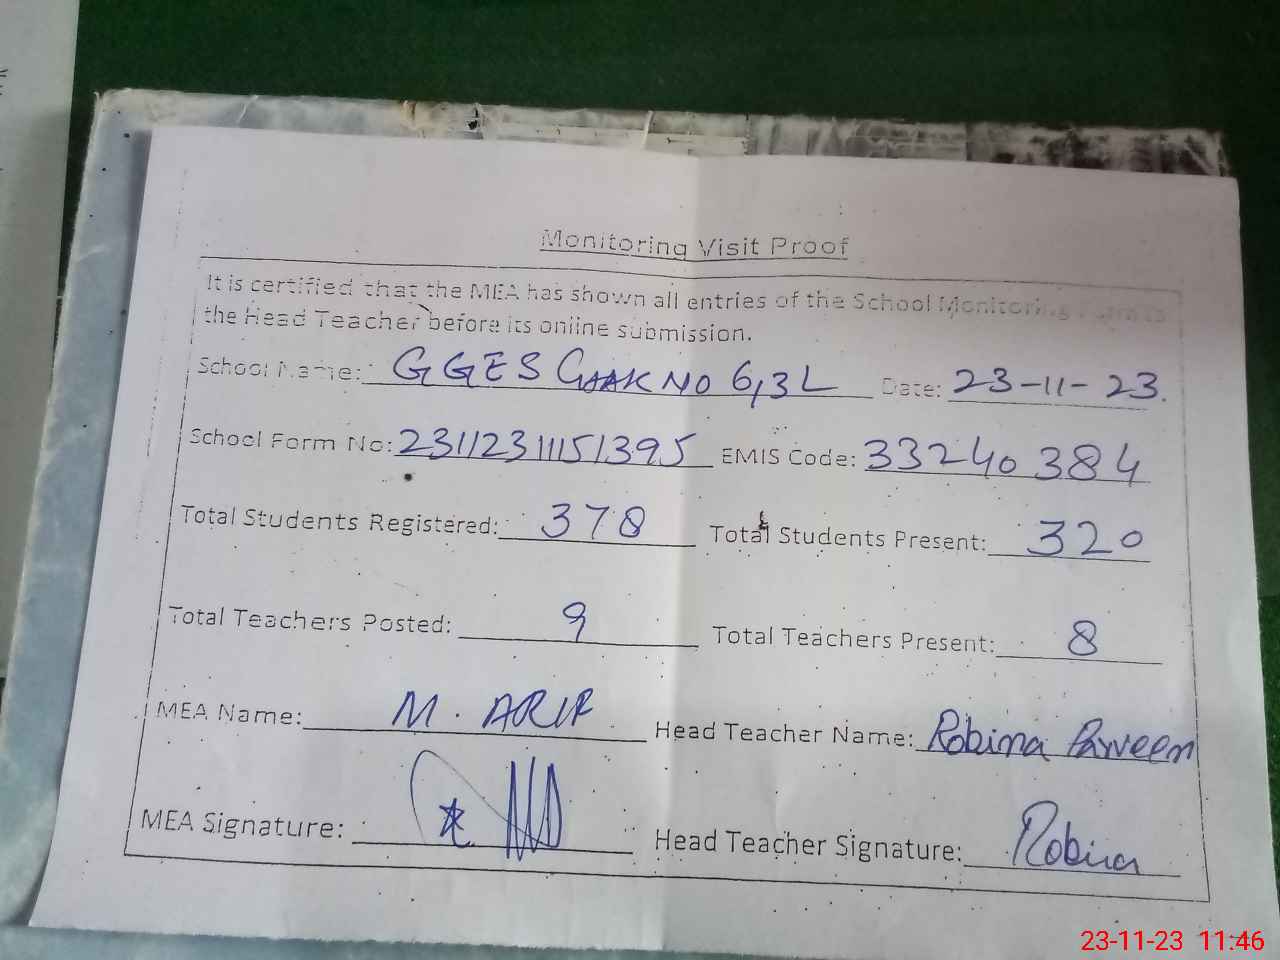 Monitoring Visit Proof
It is certified that the MEA has shown all entries of the School Monitoring Form to
the Head Teacher before its online submission.
School Name: GGES CHAK NO 6,3L Date: 23-11-23.
School Form No: 23112311151395 EMIS Code: 33240384
Total Students Registered: 378 Total Students Present: 320
Total Teachers Posted: 9 Total Teachers Present: 8
MEA Name: M. ARIF Head Teacher Name: Robina Parveen
MEA Signature: Head Teacher Signature: Robina
23-11-23 11:46